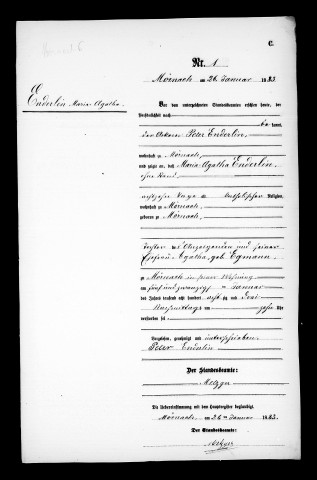 C.
Nr. 1
Mörnach am 26 Januar 1883
Enderlin Maria Agatha
Vor dem unterzeichneten Standesbeamten erschien heute, der
Persönlichkeit nach
be kannt,
der Ackerer Peter Enderlin,
wohnhaft zu Mörnach,
und zeigte an, daß Maria Agatha Enderlin
ohne Stand
Tage alt, katholischer Religion,
wohnhaft zu Mörnach,
geboren zu Mörnach,
Tochter des Obengenannten und seiner
Ehefrau Agatha, geb. Egmann
zu Mörnach in seiner Wohnung
am fünfundzwanzigsten Januar
des Jahres tausend acht hundert achtzig und drei
Nachmittags um Uhr
verstorben sei
Vorgelesen, genehmigt und unterschrieben
Peter Enderlin
Der Standesbeamte:
Metzger
Die Uebereinstimmung mit dem Hauptregister beglaubigt.
Mörnach, am 26 Januar 1883.
Der Standesbeamte:
Metzger